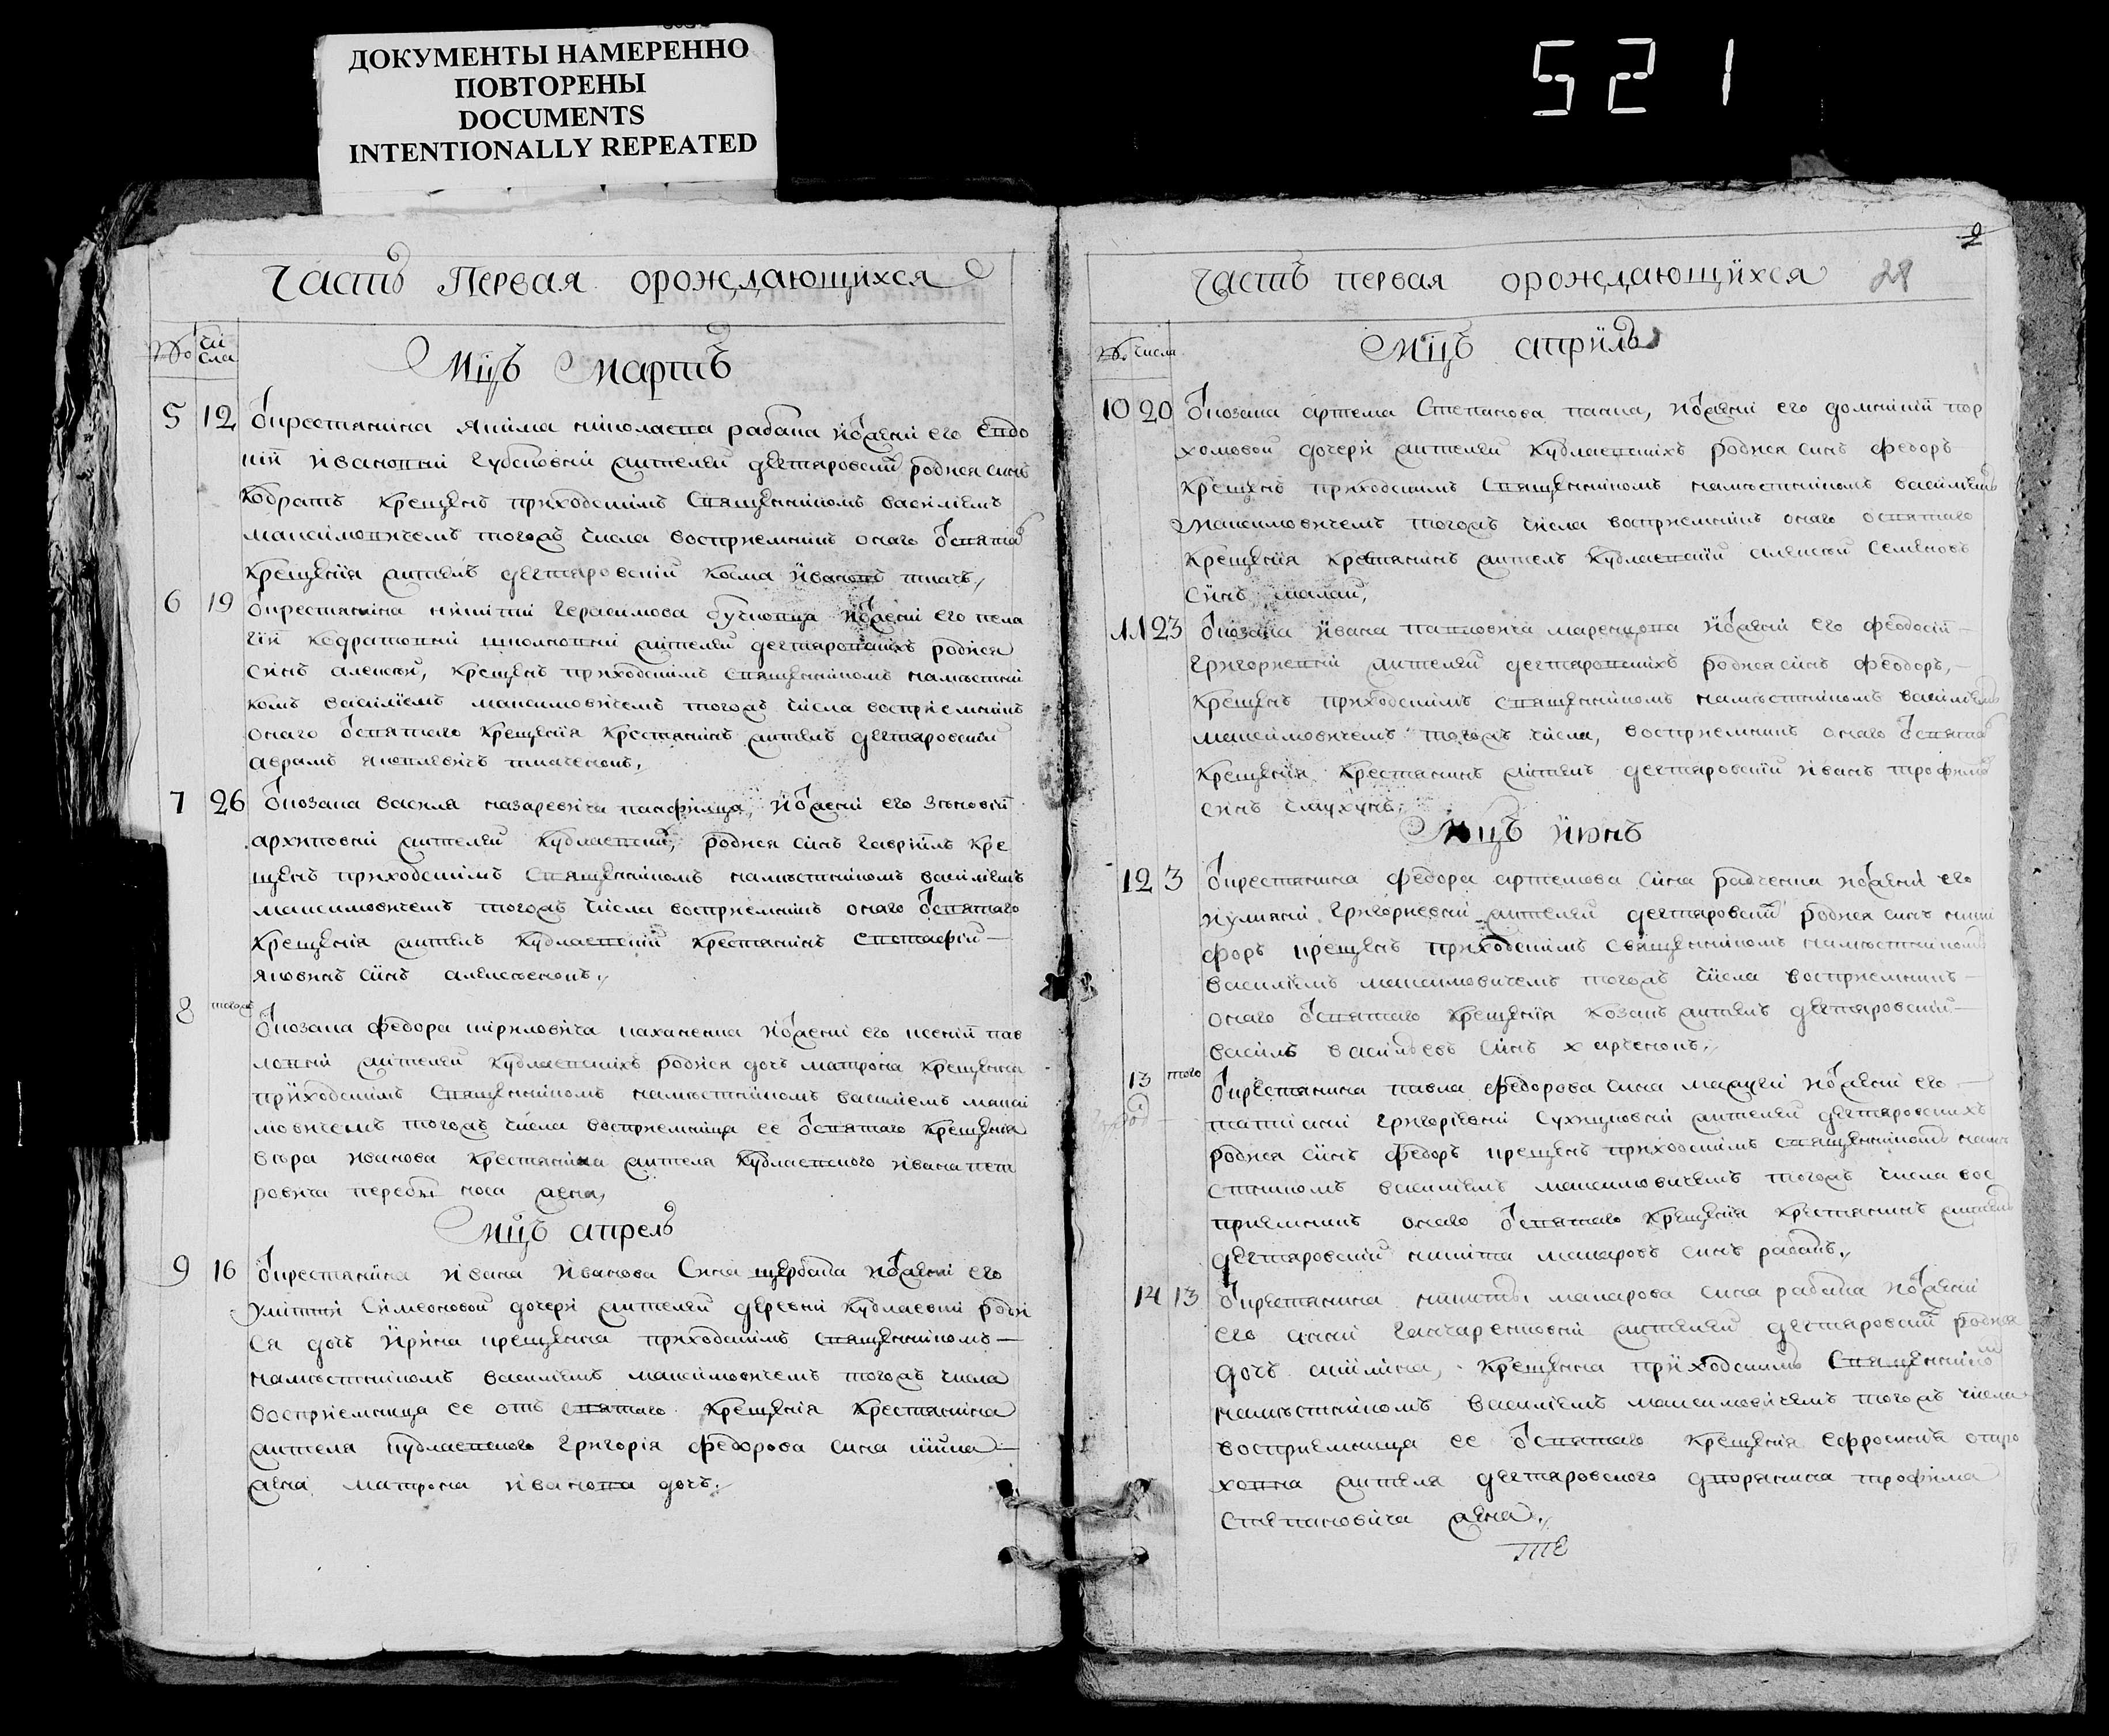 ДОКУМЕНТЫ НАМЕРЕННО
ПОВТОРЕНЫ
DOCUMENTS
INTENTIONALLY REPEATED
521
Часть Первая орождающихся
№ чи
сла
Мцъ Мартъ
5 12 Укрестянина Якима николаева рабанаижени его евдо
кіи Ивановни Губсковни жителей дегтяровских родися синъ
Кодратъ крещенъ приходскимъ священникомъ василіемъ
максимовичемъ тогожъ числа восприемникъ онаго
крещенія жителъ дегтяровскій косма Ивановъ ткачъ
6 19 Укрестянина никити герасимова ижени его пела
гіи кодратовни жителей дегтяровскихъ родися
синъ алексей, крещенъ приходскимъ священникомъ наместни
комъ василіемъ максимовичемъ тогожъ числа восприемникъ
онаго отсвятаго крещенія крестянинъ жителъ дегтяровскій
аврамъ яковлевичъ ткаченокъ
7 26 Укозака василя назаревича панфилца, ижени его зѣновіи
архиповни жителей кудлаевских, родися синъ гавриилъ кре
щенъ приходскимъ священникомъ наместникомъ василіемъ
максимовичемъ тогожъ числа восприемникъ онаго отсвятаго
крещенія жителъ кудлаевскій крестянинъ евстафій
яковивъ синъ алексеенокъ
8 тогожъ Укозака федора кириловича ижени его ксеніи пав
ловни жителей кудлаевскихъ родися дочъ матрона крещенна
приходскимъ священникомъ наместникомъ василіемъ макси
мовичемъ тогожъ числа восприемница ее отсвятаго крещенія
вѣра иванова крестянина жителя кудлаевского ивана пет
ровича перебий носа жена,
Мцъ апрель
9 16 Укрестянина ивана иванова сина щербака ижени его
улиттіи симеоновой дочери жителей деревни кудлаевки роди
ся дочъ ирина крещенна приходскимъ священникомъ
наместникомъ василіемъ максимовичемъ тогожъ числа
восприемница ее отъ святаго крещенія крестянина
жителя кудлаевского григорія федорова сина
жена матрона иванова дочъ
2
Часть первая орождающихся 28
№ числа
Мцъ априль
10 20 Укозака артема степанова ижени его домникии пар
хомовой дочери жителей кудлаевскихъ родися синъ федоръ
крещенъ приходскимъ священникомъ наместникомъ василіемъ
максимовичемъ тогожъ числа восприемникъ онаго освятаго
крещенія крестянинъ жителъ кудлаевскій алексей семеновъ
синъ
11 23 Укозака ивана павловича маренцова ижени его феодосіи
григориевни жителей дегтяровскихъ родися синъ феодоръ,
крещенъ приходскимъ священникомъ наместникомъ василіемъ
максимовичемъ тогожъ числа, восприемникъ онаго
крещенія крестянинъ жителъ дегтяровскій иванъ трофимовъ
синъ глухунъ
Мцъ июнъ
12 3 Укрестянина федора артемова сина радченка ижени его
иулияни григориевни жителей дегтяровских родися синъ ники
форъ крещенъ приходскимъ священникомъ наместникомъ
василіемъ максимовичемъ тогожъ числа восприемникъ
онаго отсвятаго крещенія козакъ жителъ дегтяровскій
василъ василиевъ синъ харченокъ
13 того Укрестянина павла федорова сина ижени его
татияни григоріевни жителей дегтяровскихъ
родися синъ федоръ крещенъ приходскимъ священникомъ наме
стникомъ василіемъ максимовичемъ тогожъ числа вос
приемникъ онаго отсвятаго крещенія крестянинъ жителъ
дегтяровскій никита макаровъ синъ рабакъ
14 13 Укрестянина никиты макарова сина рабака ижени
его анни гончаренковни жителей дегтяровских родися
дочъ акилина, крещенна приходскимъ священником
наместникомъ василіемъ максимовичемъ тогожъ числа
восприемница ее отсвятаго крещенія ефросинія
жителя дегтяровского дворянина трофима
степановича жена